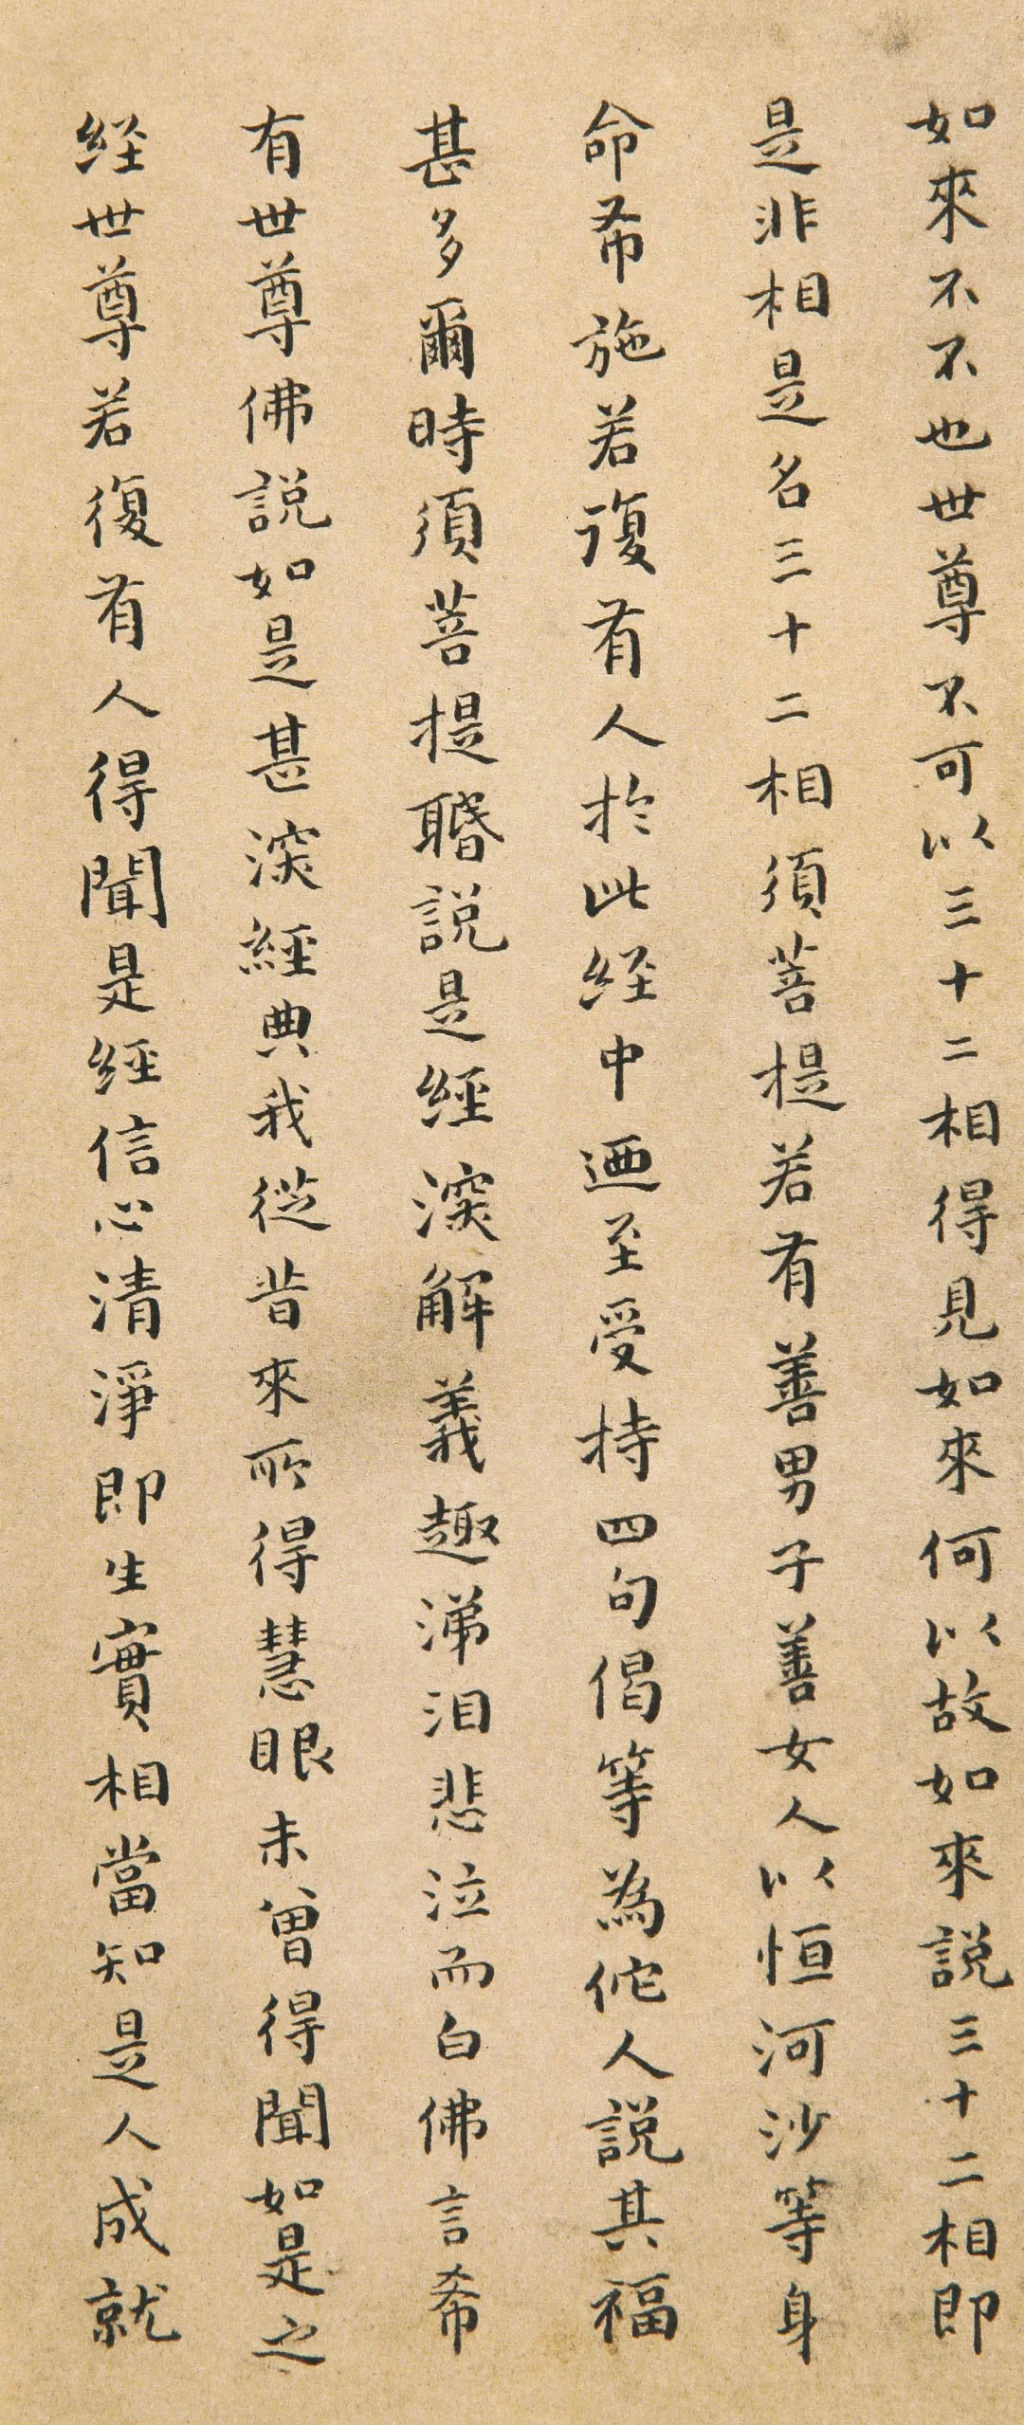 如來不不也世尊不可以三十二相得見如來何以故如來説三十二相即
是非相是名三十二相須菩提若有善男子善女人以恒河沙等身
命希施若複有人於此経中迺至受持四句偈等為佗人説其福
甚多爾時須菩提聞説是經深解義趣涕泪悲泣而白佛言希
有世尊佛説如是甚深經典我從昔來所得慧眼未曾得聞如是之
経世尊若復有人得聞是經信心清淨即生實相當知是人成就